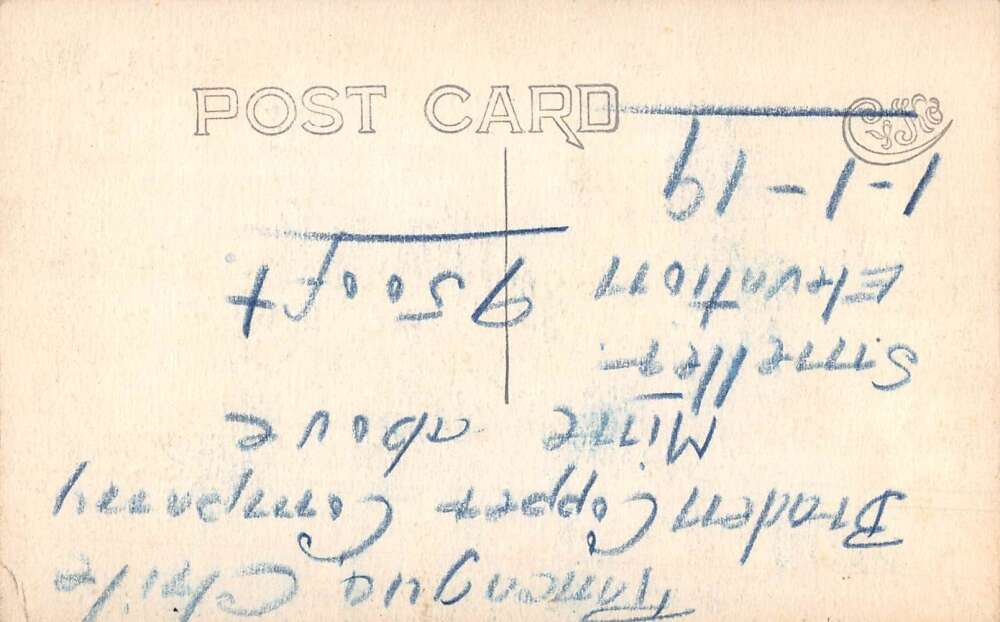 POST CARD
Rancagua Chile
Braden Copper Company
Mine above
Smelter
Elevation 9500 ft
1-1-19